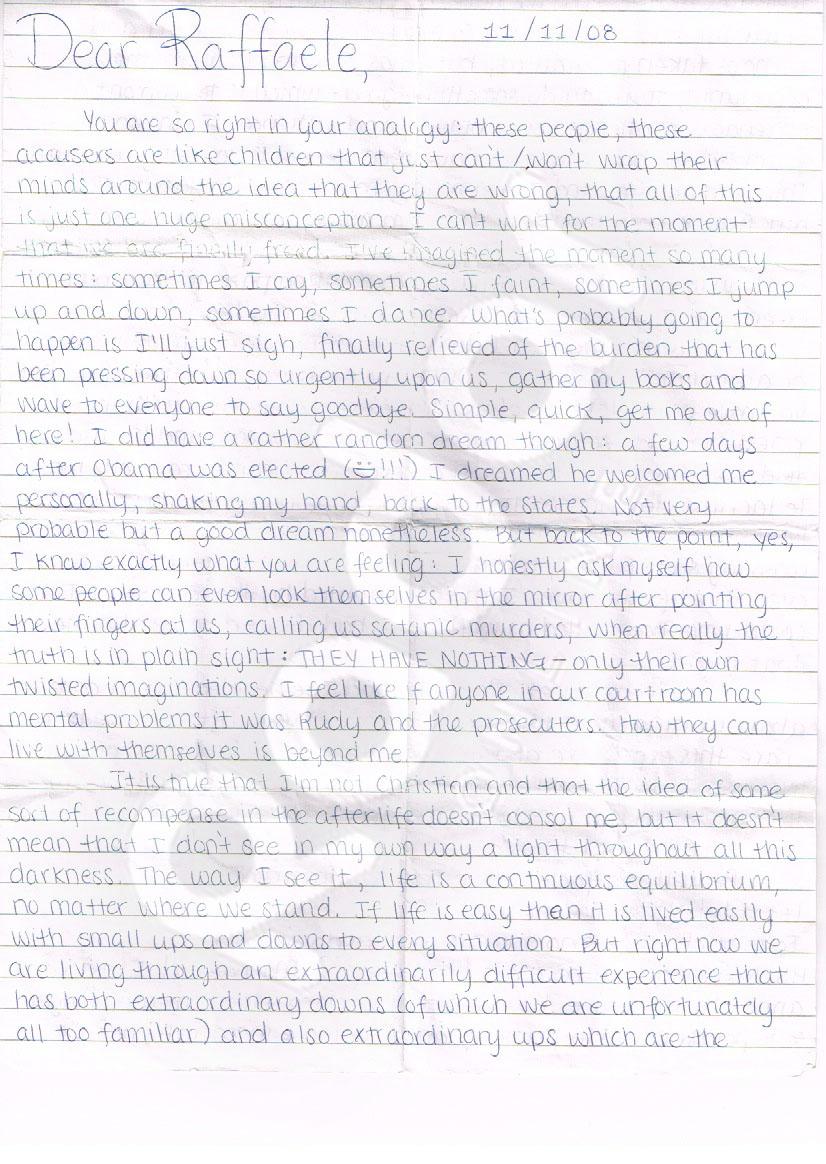 11/11/08
Dear Raffaele,
You are so right in your analogy: these people, these
accusers are like children that just can't/won't wrap their
minds around the idea that they are wrong, that all of this
is just one huge misconception. I can't wait for the moment
that we are finally freed. I've imagined the moment so many
times: sometimes I cry, sometimes I faint, sometimes I jump
up and down, sometimes I dance. What's probably going to
happen is I'll just sigh, finally relieved of the burden that has
been pressing down so urgently upon us, gather my books and
wave to everyone to say goodbye. Simple, quick, get me out of
here! I did have a rather random dream though: a few days
after Obama was elected (😃!!!) I dreamed he welcomed me
personally, shaking my hand, back to the states. Not very
probable but a good dream nonetheless. But back to the point, yes,
I know exactly what you are feeling: I honestly ask myself how
some people can even look themselves in the mirror after pointing
their fingers at us, calling us satanic murders, when really the
truth is in plain sight: THEY HAVE NOTHING – only their own
twisted imaginations. I feel like if anyone in our courtroom has
mental problems it was Rudy and the prosecuters. How they can
live with themselves is beyond me.
It is true that I'm not Christian and that the idea of some
sort of recompense in the afterlife doesn't consol me, but it doesn't
mean that I don't see in my own way a light throughout all this
darkness. The way I see it, life is a continuous equilibrium,
no matter where we stand. If life is easy than it is lived easily
with small ups and downs to every situation. But right now we
are living through an extraordinarily difficult experience that
has both extraordinary downs (of which we are unfortunately
all too familiar) and also extraordinary ups which are the